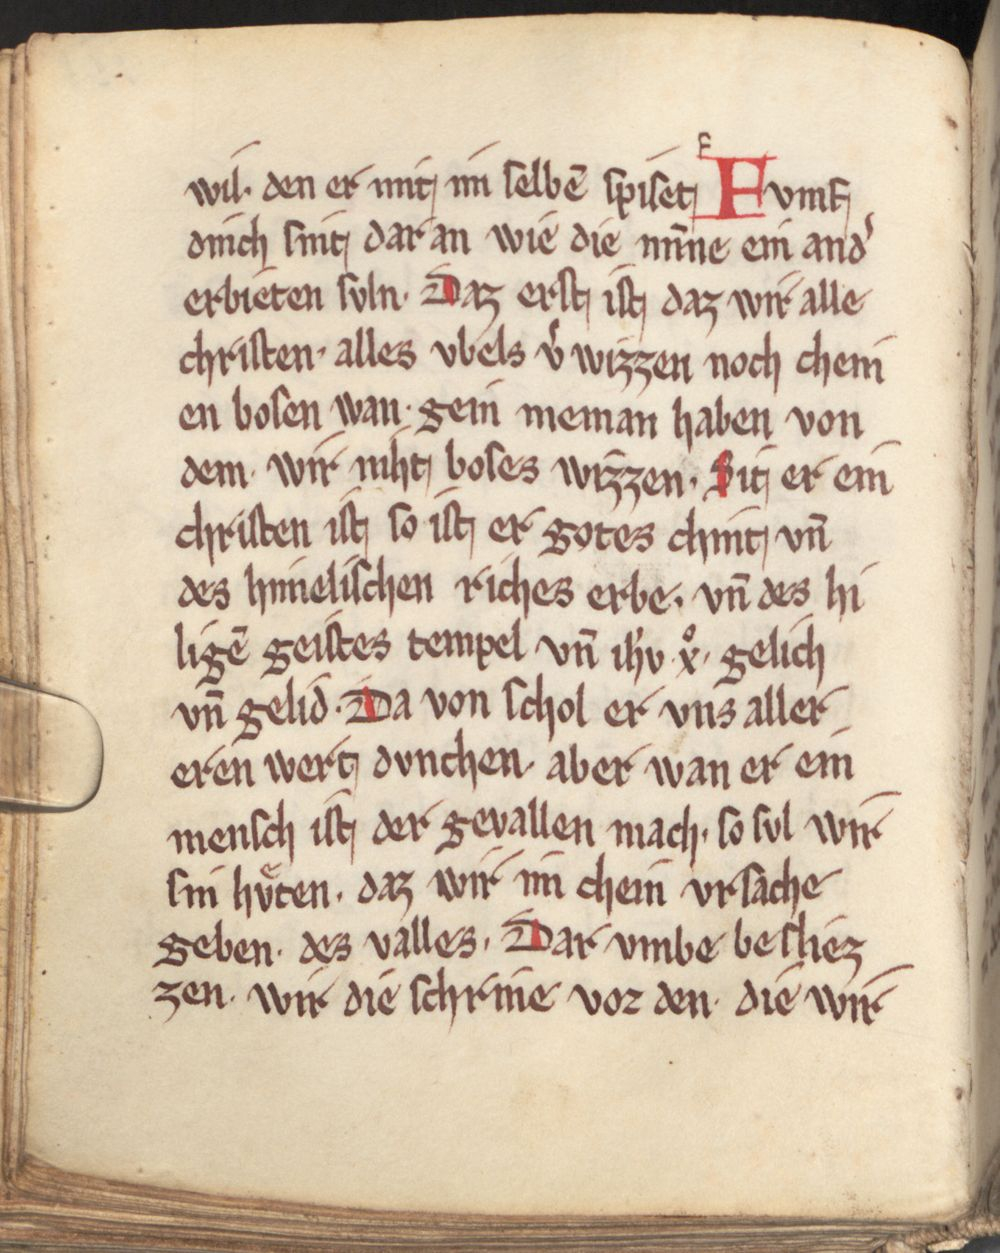 wil· den er mit im selbē spiset Fvmf
dinch sint dar an wie die mīne ein and'
erbieten svln· Daz erst ist daz wir alle
christen· alles vbels v'wizzen noch chein
en bosen wan· gein nieman haben von
dem· wir niht boses wizzen· Sit er ein
christen ist so ist er gotes chint vn̄
des himelischen riches erbe· vn̄ des hi
ligē geistes tempel vn̄ ih'v x°· gelich
vn̄ gelid· Da von schol er vns aller
eren wert dvnchen· aber wan er ein
mensch ist der gevallen mach· so svl wir
sin hvͤten· daz wir im chein vrsache
geben· des valles· Dar vmbe besliez
zen· wir die schrine vor den· die wir